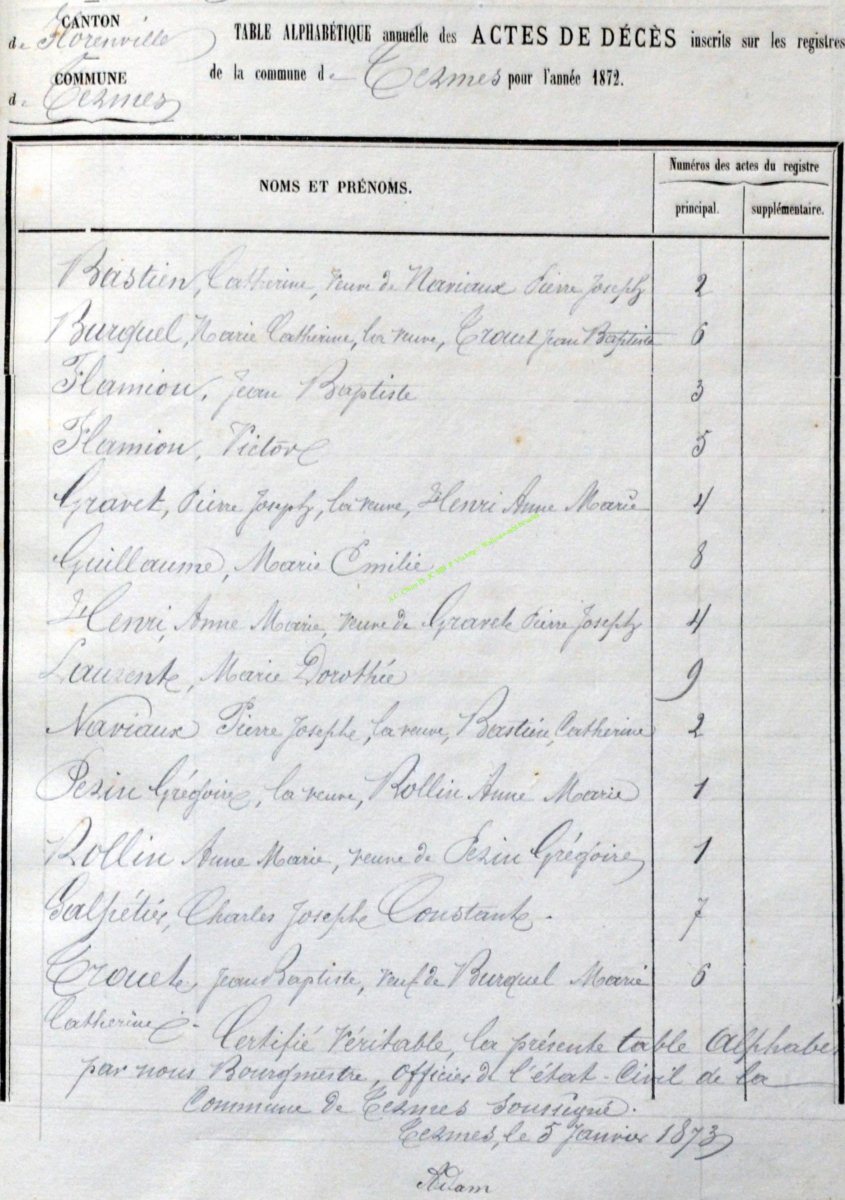 CANTON
de Florenville
COMMUNE
de Termes
TABLE ALPHABÉTIQUE annuelle des ACTES DE DÉCÈS inscrits sur les registres
de la commune de Termes pour l'année 1872.
NOMS ET PRÉNOMS.
Numéros des actes du registre
principal. supplémentaire.
Bastien, Catherine, veuve de Naviaux Pierre Joseph 2
Burquel, Marie Catherine, la veuve, Trouet Jean Baptiste 6
Flamion, Jean Baptiste 3
Flamion, Victor 5
Gravet, Pierre Joseph, la veuve, Henri Anne Marie 4
Guillaume, Marie Emilie 8
Henri, Anne Marie, veuve de Gravet Pierre Joseph 4
Laurent, Marie Dorothée 9
Naviaux Pierre Joseph, la veuve, Bastien, Catherine 2
Pesin Grégoire, la veuve, Rollin Anne Marie 1
Rollin Anne Marie, veuve de Pesin Grégoire 1
Salpétier, Charles Joseph Constant. 7
Trouet, Jean Baptiste, veuf de Burquel Marie 6
Catherine.
Certifié véritable, la présente table Alphabé
par nous Bourgmestre, officier de l'état-Civil de la
Commune de Termes soussigné.
Termes, le 5 Janvier 1873
Adam